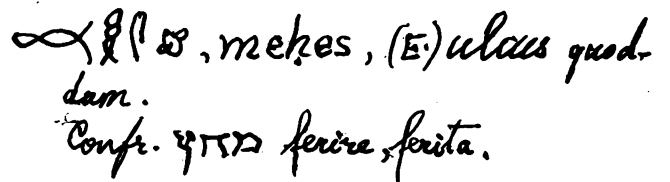 , meḥes, (E.) ulcus quod-
dam.
Confr. מחץ ferire, ferita.